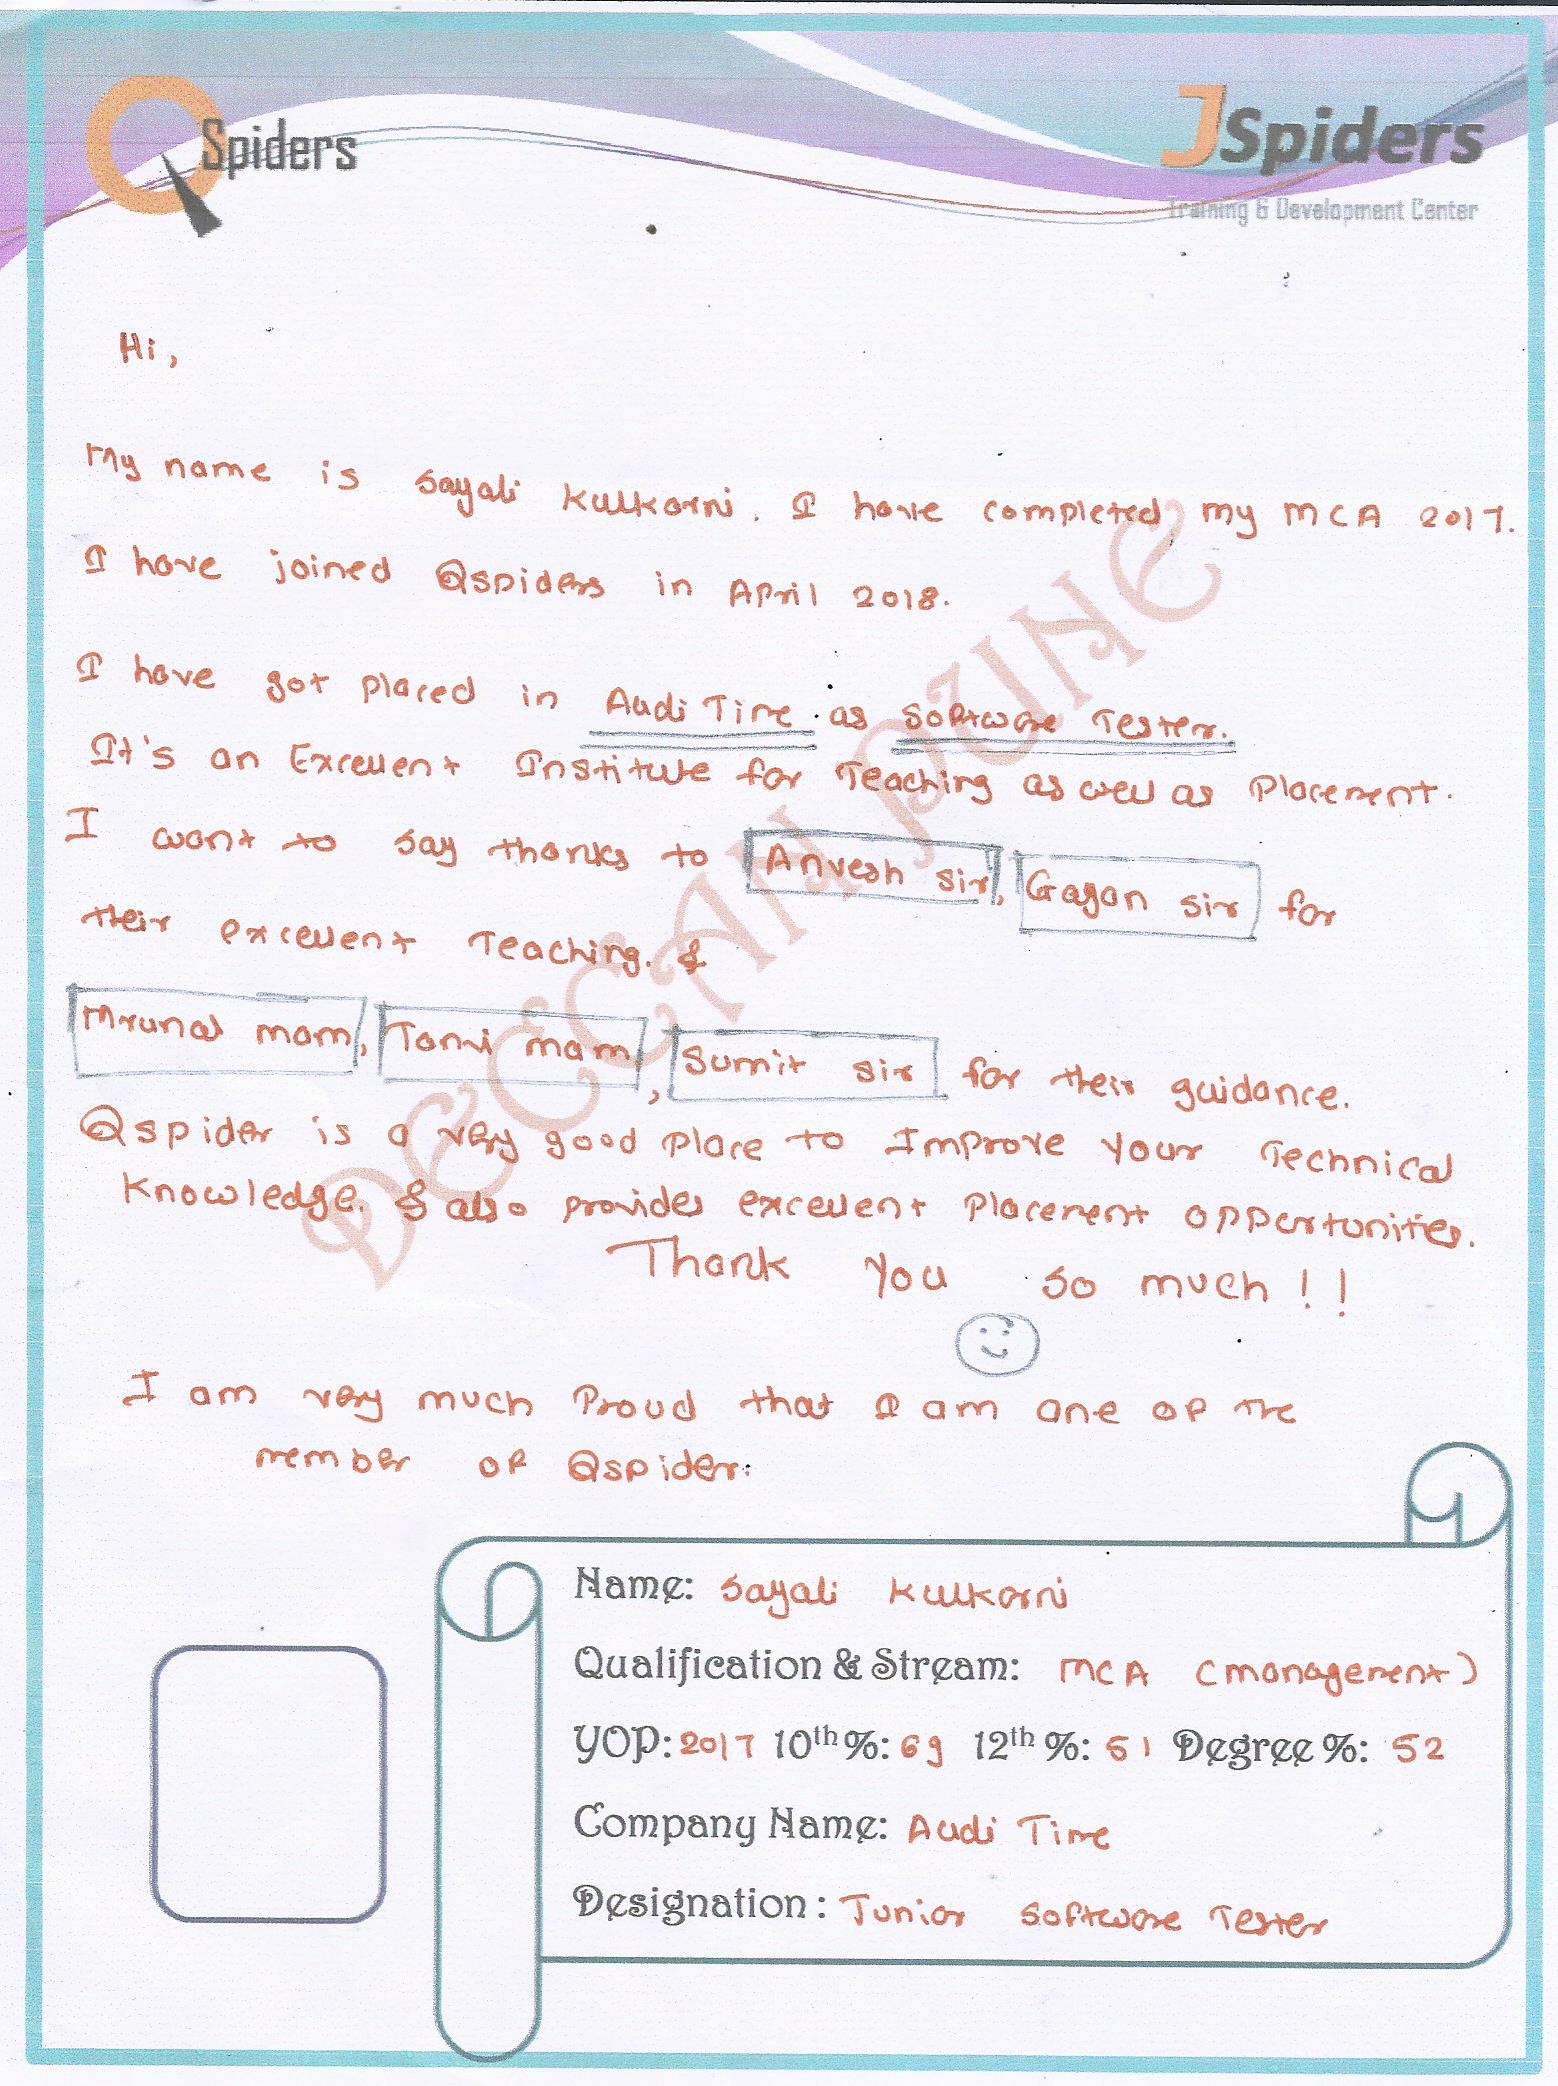 QSpiders
JSpiders
Training & Development Center
Hi,
My name is Sayali Kulkarni. I have completed my MCA 2017.
I have joined Qspiders in April 2018.
I have got placed in Audi Time as Software Tester.
It's an Excellent Institute for Teaching as well as Placement.
I want to say thanks to Anvesh sir, Gagan sir for
their excellent Teaching. &
Mrunal mam, Tanvi mam, Sumit sir for their guidance.
Qspider is a very good place to Improve your Technical
Knowledge. & also provides excellent Placement opportunities.
Thank you so much !!
I am very much Proud that I am one of the
member of Qspider.
DECCAN PUNE
Name: Sayali Kulkarni
Qualification & Stream: MCA (Management)
YOP: 2017 10th %: 69 12th %: 51 Degree %: 52
Company Name: Audi Time
Designation : Junior Software Tester